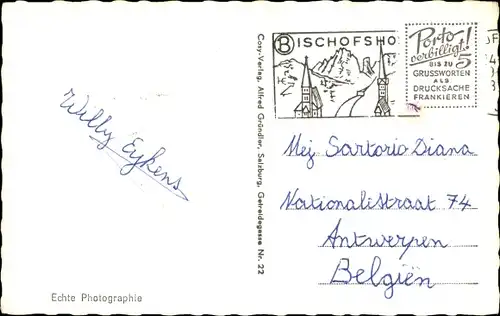 BISCHOFSHO
Porto
verbilligt!
BIS ZU 5
GRUSSWORTEN
ALS
DRUCKSACHE
FRANKIEREN
Willy Eykens
Cosy-Verlag, Alfred Gründler, Salzburg, Getreidegasse Nr. 22
Mej Sartorio Diana
Nationalistraat 74
Antwerpen
Belgiën
Echte Photographie